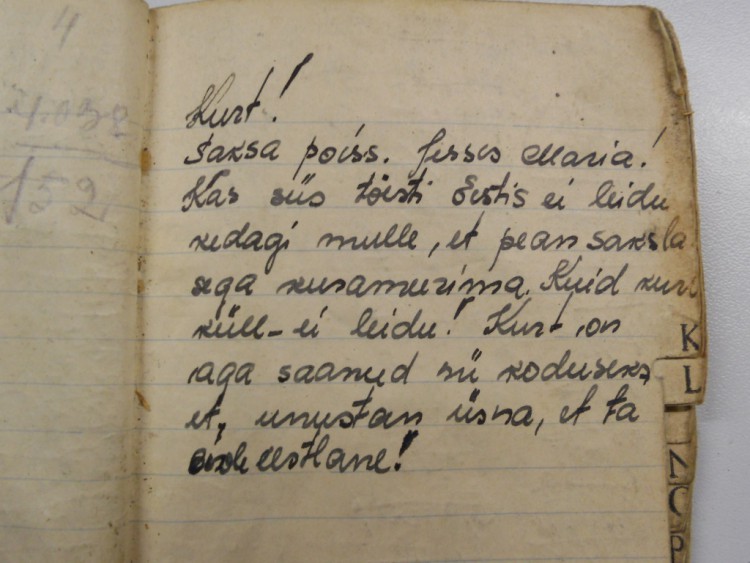 4
152
Kurt!
Saksa poiss. Jesses Maria!
Kas siis tõesti Eestis ei leidu
kedagi mulle, et pean saksla
sega kuramerima. Kuid kuri
küll - ei leidu! Kurt, on
aga saanud nii koduseks
et, unustan üsna, et ta
eestlane!
K
L